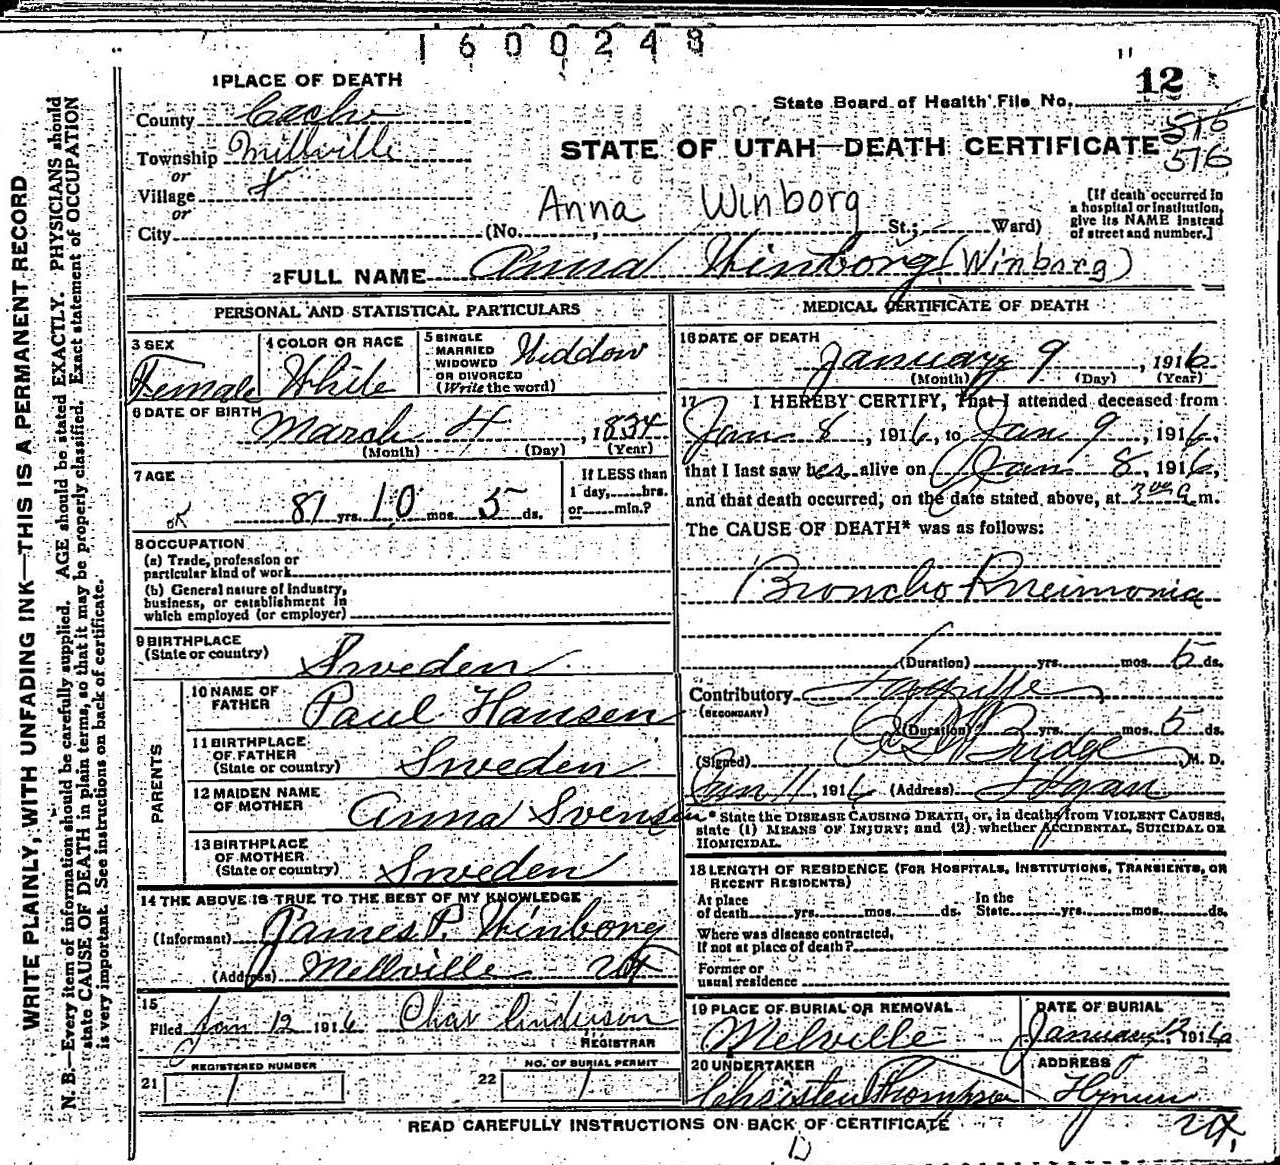 1600248
12
1 PLACE OF DEATH
State Board of Health File No.
County Cache
516
576
Township Millville
STATE OF UTAH—DEATH CERTIFICATE
or
Village
or
Anna Winborg
[If death occurred in
a hospital or institution,
give its NAME instead
of street and number.]
City (No. , St.; Ward)
2 FULL NAME Anna Winborg (Winborg)
PERSONAL AND STATISTICAL PARTICULARS
3 SEX
Female
4 COLOR OR RACE
White
5 SINGLE
MARRIED
WIDOWED
OR DIVORCED
(Write the word)
Widdow
6 DATE OF BIRTH
March 4, 1834
(Month) (Day) (Year)
7 AGE
ok 81 yrs. 10 mos. 5 ds.
If LESS than
1 day, hrs.
or min.?
8 OCCUPATION
(a) Trade, profession or
particular kind of work
(b) General nature of industry,
business, or establishment in
which employed (or employer)
9 BIRTHPLACE
(State or country) Sweden
PARENTS
10 NAME OF
FATHER Paul Hansen
11 BIRTHPLACE
OF FATHER
(State or country) Sweden
12 MAIDEN NAME
OF MOTHER Anna Svensen
13 BIRTHPLACE
OF MOTHER
(State or country) Sweden
14 THE ABOVE IS TRUE TO THE BEST OF MY KNOWLEDGE
(Informant) James P. Winborg
(Address) Millville Ut
15
Filed Jan 12 1916 Chas Anderson
REGISTRAR
REGISTERED NUMBER
21 1
NO. OF BURIAL PERMIT
22 1
MEDICAL CERTIFICATE OF DEATH
16 DATE OF DEATH
January 9, 1916
(Month) (Day) (Year)
17 I HEREBY CERTIFY, That I attended deceased from
Jan 8, 1916, to Jan 9, 1916,
that I last saw her alive on Jan 8, 1916,
and that death occurred, on the date stated above, at 3 00 a m.
The CAUSE OF DEATH* was as follows:
Broncho Pneimonia
(Duration) yrs. mos. 5 ds.
Contributory Lagrippe
(SECONDARY)
(Duration) yrs. mos. 5 ds.
(Signed) Budge M. D.
Jan 11, 1916 (Address) Logan
* State the DISEASE CAUSING DEATH, or, in deaths from VIOLENT CAUSES,
state (1) MEANS OF INJURY; and (2) whether ACCIDENTAL, SUICIDAL OR
HOMICIDAL.
18 LENGTH OF RESIDENCE (FOR HOSPITALS, INSTITUTIONS, TRANSIENTS, OR
RECENT RESIDENTS)
At place
of death yrs. mos. ds.
In the
State yrs. mos. ds.
Where was disease contracted,
if not at place of death?
Former or
usual residence
19 PLACE OF BURIAL OR REMOVAL
Melville
DATE OF BURIAL
January 12, 1916
20 UNDERTAKER
Christen Thompson
ADDRESS
Hyrum
Ut.
READ CAREFULLY INSTRUCTIONS ON BACK OF CERTIFICATE
WRITE PLAINLY, WITH UNFADING INK—THIS IS A PERMANENT RECORD
N. B.—Every item of information should be carefully supplied. AGE should be stated EXACTLY. PHYSICIANS should
state CAUSE OF DEATH in plain terms, so that it may be properly classified. Exact statement of OCCUPATION
is very important. See instructions on back of certificate.